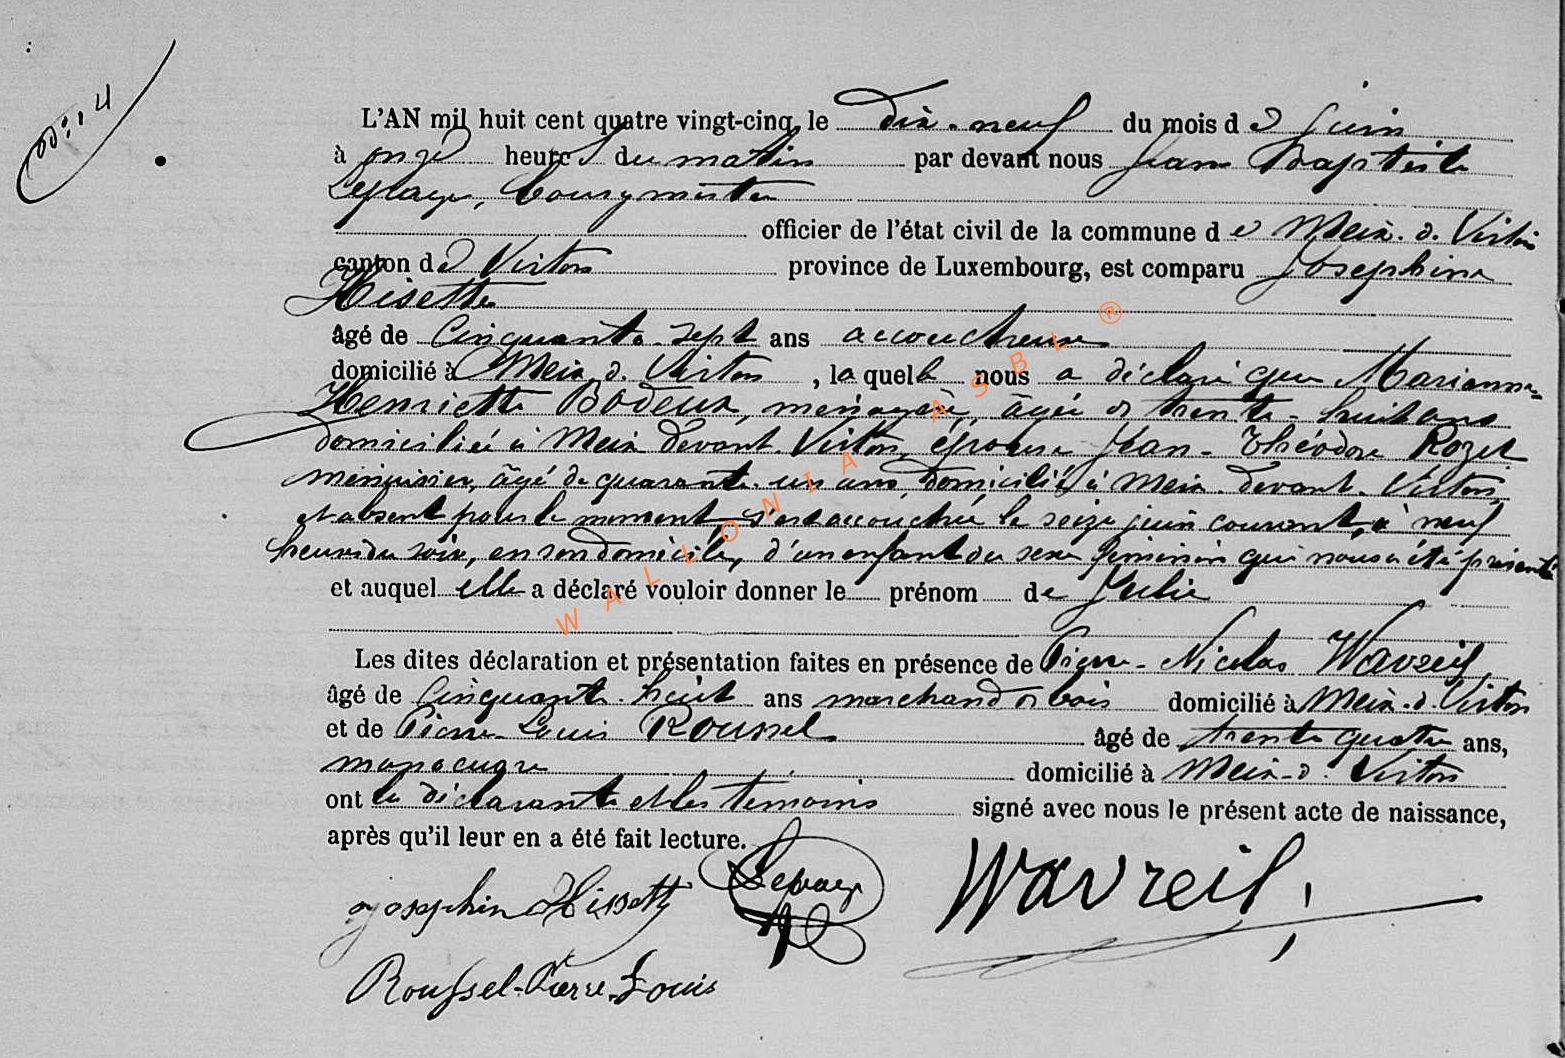 L'AN mil huit cent quatre vingt-cinq, le dix-neuf du mois de Juin
à onze heures du matin par devant nous Jean Baptiste
Lepage, bourgmestre
officier de l'état civil de la commune de Meix-d-Virton
canton de Virton province de Luxembourg, est comparu Joséphine
Hisette
âgé de Cinquante-sept ans accoucheuse
domicilié à Meix-d-Virton, laquelle nous a déclaré que Marianne-
Henriette Bodeux, ménagère, âgée de trente-huit ans
domiciliée à Meix devant Virton, épouse Jean-Théodore Rozet
menuisier, âgé de quarante-un ans, domicilié à Meix-devant-Virton
et absent pour le moment, s'est accouchée le seize juin courant, à neuf
heures du soir, en son domicile, d'un enfant du sexe féminin qui nous a été présenté
et auquel elle a déclaré vouloir donner le prénom de Julie
Les dites déclaration et présentation faites en présence de Pierre-Nicolas Wavreil
âgé de Cinquante-huit ans marchand de bois domicilié à Meix-d-Virton
et de Pierre-Louis Roussel âgé de trente quatre ans,
manoeuvre domicilié à Meix-d-Virton
ont la déclarante et les témoins signé avec nous le présent acte de naissance,
après qu'il leur en a été fait lecture.
Josephine Hissette Lepage Wavreil
Roussel-Pierre-Louis
WALLONIA ASBL ®